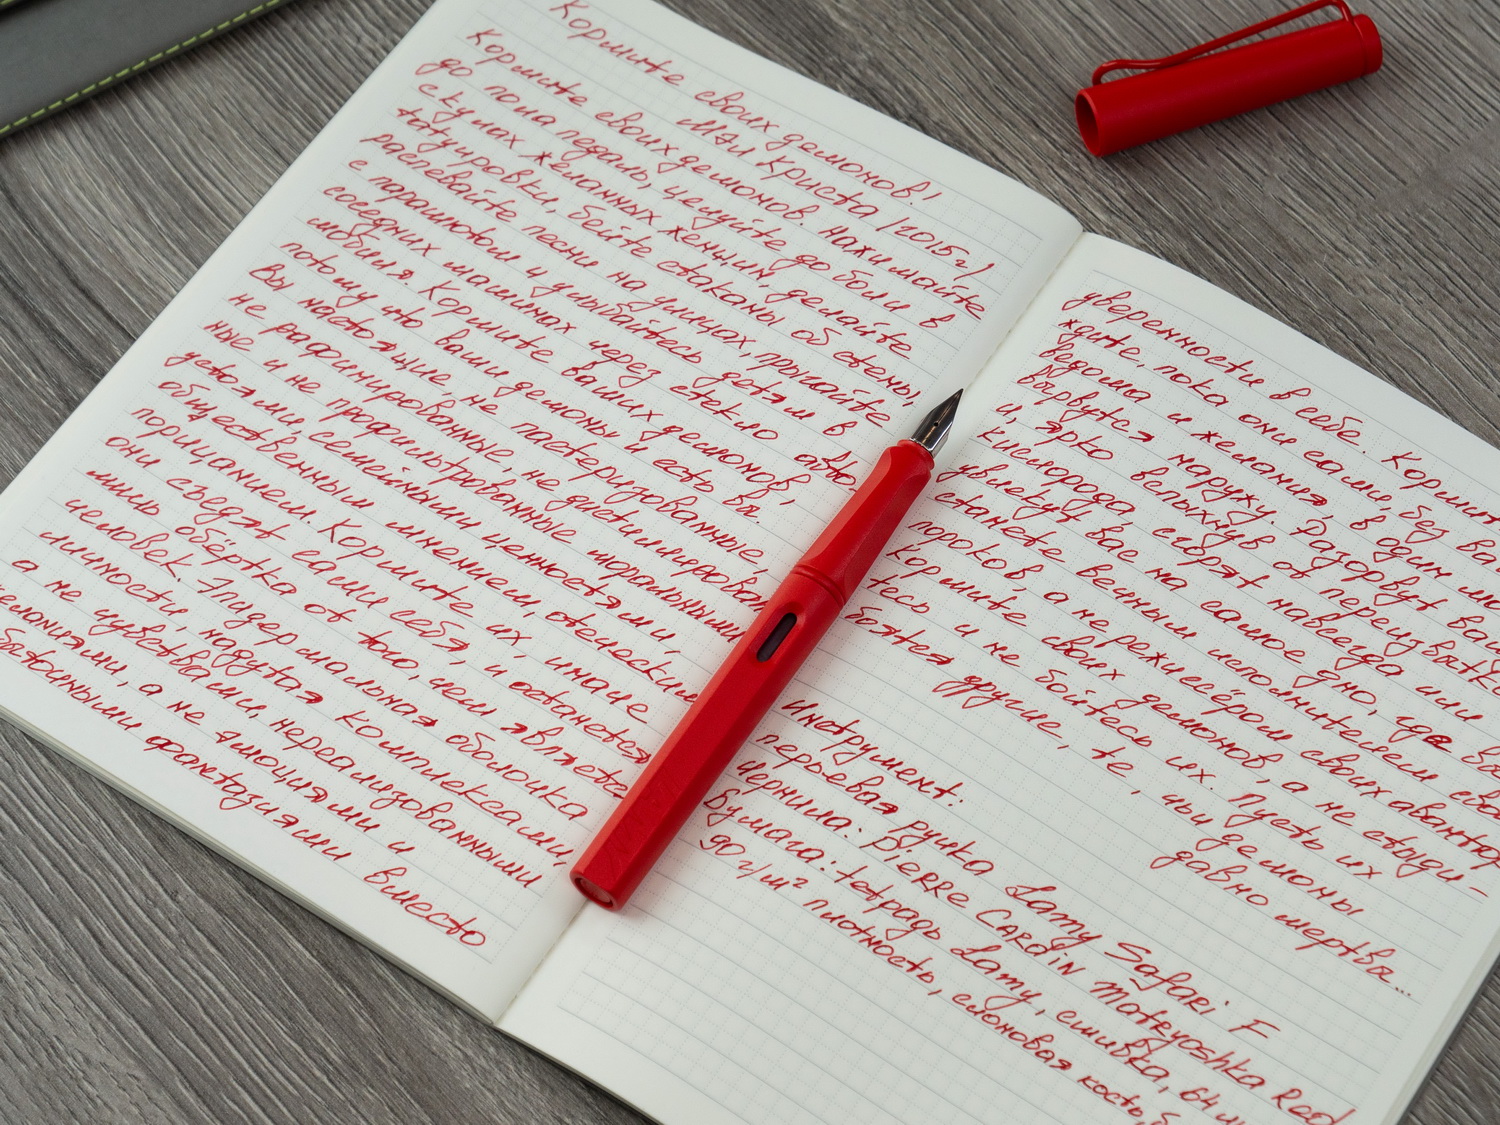 Кормите своих демонов!
Мая Криста (2015г)
Кормите своих демонов. Нажимайте
до пола педаль, целуйте до боли в
скулах желанных женщин, делайте
татуировки, бейте стаканы об стены,
распевайте песни на улицах, прыгайте
с парашютом и улыбайтесь детям в
соседних машинах через стекло авто-
мобиля. Кормите ваших демонов,
потому что ваши демоны и есть вы.
Вы настоящие, не пастеризованные,
не рафинированные, не дистиллирован
ные и не профильтрованные моральными
устоями, семейными ценностями и
общественным мнением, отеческим
порицанием. Кормите их, иначе
они съедят сами себя, и останется
лишь обёртка от того, чем является
человек. Эпидермальная оболочка
личности, надутая комплексами,
а не чувствами, нереализованными
желаниями, а не эмоциями и
бытовыми фантазиями вместо
уверенности в себе. Кормит
ждите, пока они сами, без ва
ведома и желания, в один ми
вырвутся наружу. Разорвут ва
и, ярко вспыхнув от переизбытка
кислорода, сгорят навсегда или
увлекут вас на самое дно, где в
станете вечным исполнителем сво
пороков, а не режиссёром своих авантю
Кормите своих демонов, а не стыди-
тесь и не бойтесь их. Пусть их
боятся другие, те, чьи демоны
давно мертвы...
Инструмент:
перьевая ручка Lamy Safari F
чернила: Pierre Cardin Matryoshka Red
бумага: тетрадь Lamy, сшивка, 64
90г/м² плотность, слоновая кость,